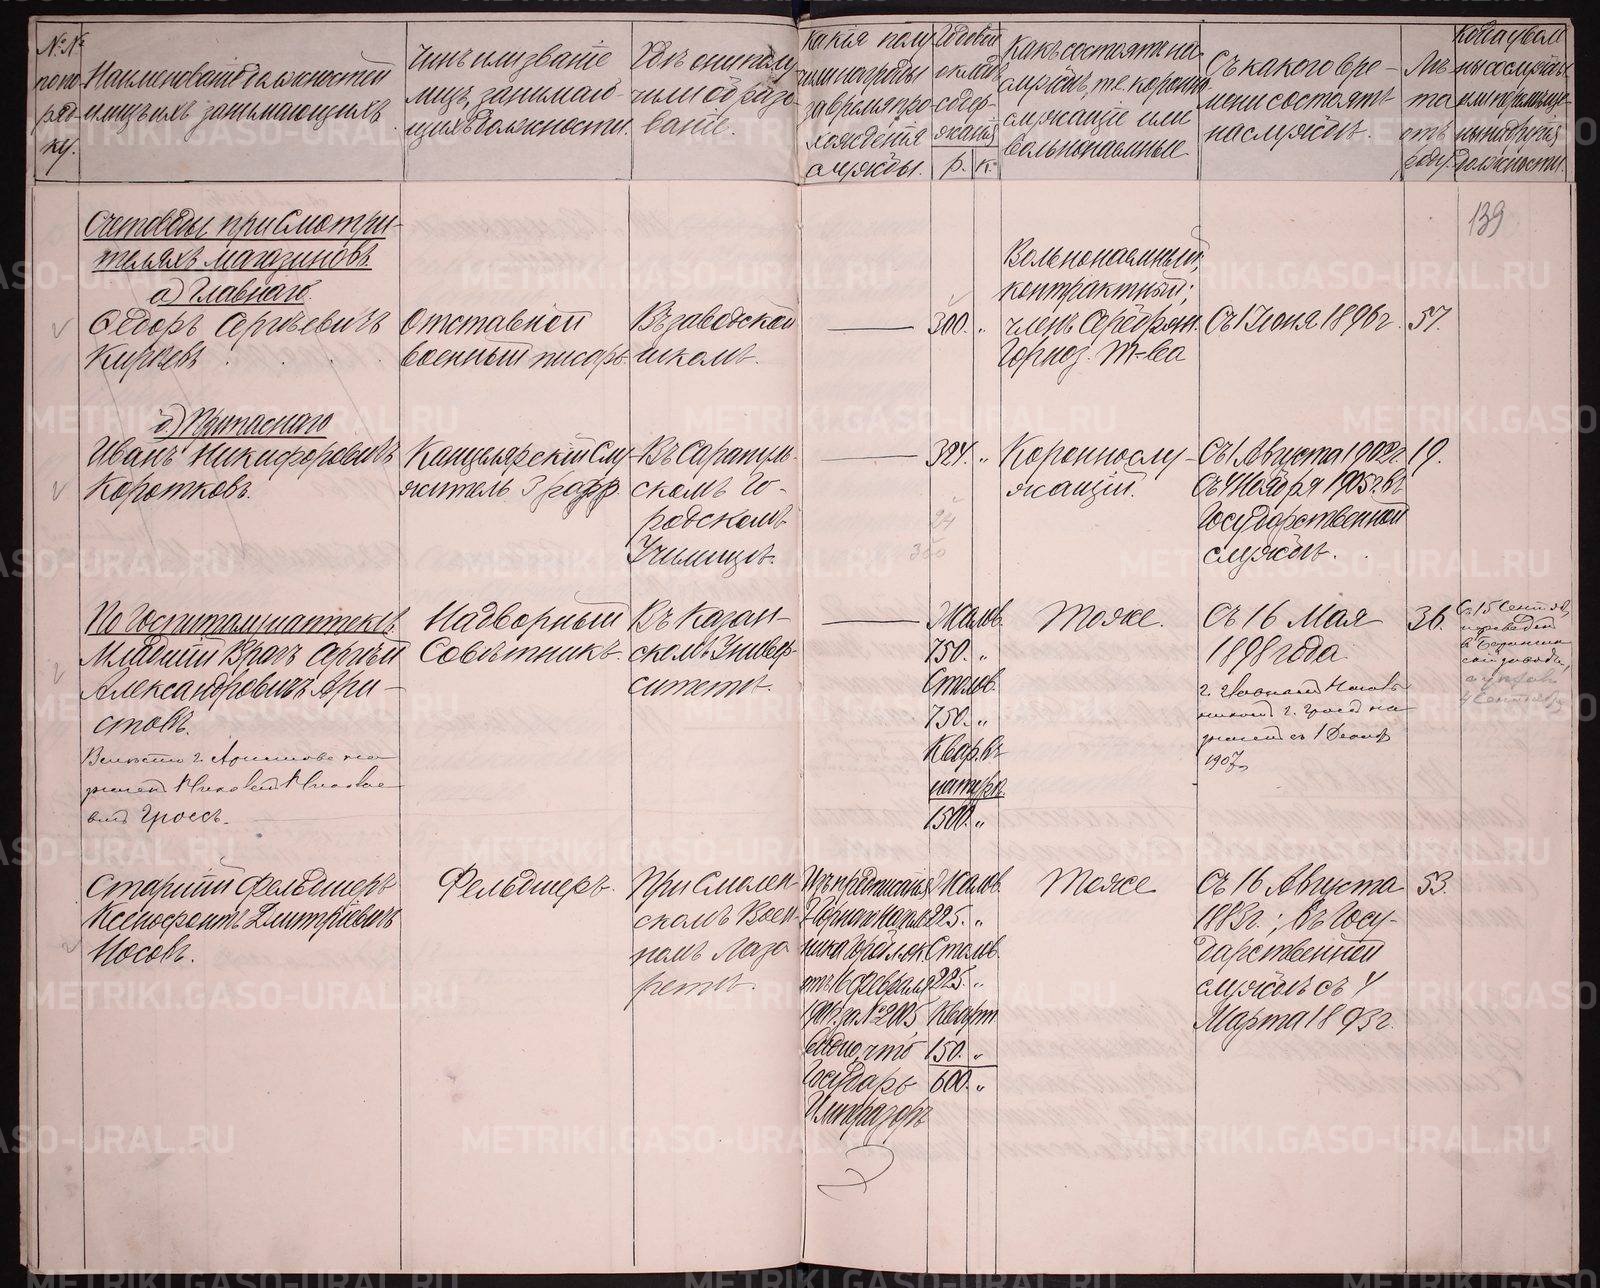 №№ по порядку.
Наименованіе должностей
и лицъ ихъ занимающихъ.
Чинъ или званіе
лицъ, занимаю-
щихъ должности.
Гдѣ они полу-
чили образо-
ваніе.
Какія полу-
чили награды
за время про-
хожденія
службы.
Годовой
окладъ
содер-
жанія
р. к.
Какъ состоятъ на
службѣ, т.е. коронно
служащіе или
вольнонаемные
Съ какого вре-
мени состоятъ
на службѣ.
Лѣ-
та
отъ
роду
Когда уволе-
ны со службы
или перемѣще-
ны на другія
должности.
139
Счетоводы при Смотри-
теляхъ магазиновъ.
а) Главнаго.
Ѳедоръ Сергѣевичъ
Киргѣевъ
Отставной
военный писарь.
Въ заводской
школѣ.
300. „
Вольнонаемный,
контрактный;
членъ Серебрян.
Горноз. Т-ва
Съ 1 Іюня 1896 г.
57.
б) Припаснаго
Иванъ Никифоровичъ
Коротковъ.
Канцелярскій Слу-
житель 3 разр.
Въ Сарапуль-
скомъ Го-
родскомъ
Училищѣ.
324. „
24
300
Коронно слу-
жащій.
Съ 1 Августа 1902 г.
Съ 4 Ноября 1905 г. въ
Государственной
службѣ.
19.
По Госпиталю и аптекѣ.
Младшій Врачъ Сергѣй
Александровичъ Ари-
стовъ.
Вмѣсто г. Аристова на-
значен Николай Николае-
вич Гроссъ.
Надворный
Совѣтникъ.
Въ Казан-
скомъ Универ-
ситетѣ.
Жалов.
750. „
Столов.
750. „
Квар. въ
натурѣ.
1500. „
Тоже.
Съ 16 Мая
1898 года
г. Главнаго Началь-
ником г. Гросс на-
значен съ 1 Декабр
1907 г.
36.
Съ 15 Сентяб.
переведен
4 Сентября
Старшій Фельдшеръ
Ксенофонтъ Дмитріевичъ
Носовъ.
Фельдшеръ.
При Смолен-
скомъ Воен-
номъ Лаза-
ретѣ.
Изъ предписанія
Горнаго Началь-
ника Гороблагод.
отъ 16 Февраля
1901 г. за № 2005
видно, что
Государь
Императоръ
Жалов.
225. „
Столов.
225. „
Кварт.
150. „
600. „
Тоже
Съ 16 Августа
1883 г.; въ Госу-
дарственной
службѣ съ 4
Марта 1893 г.
53.
METRIKI.GASO-URAL.RU